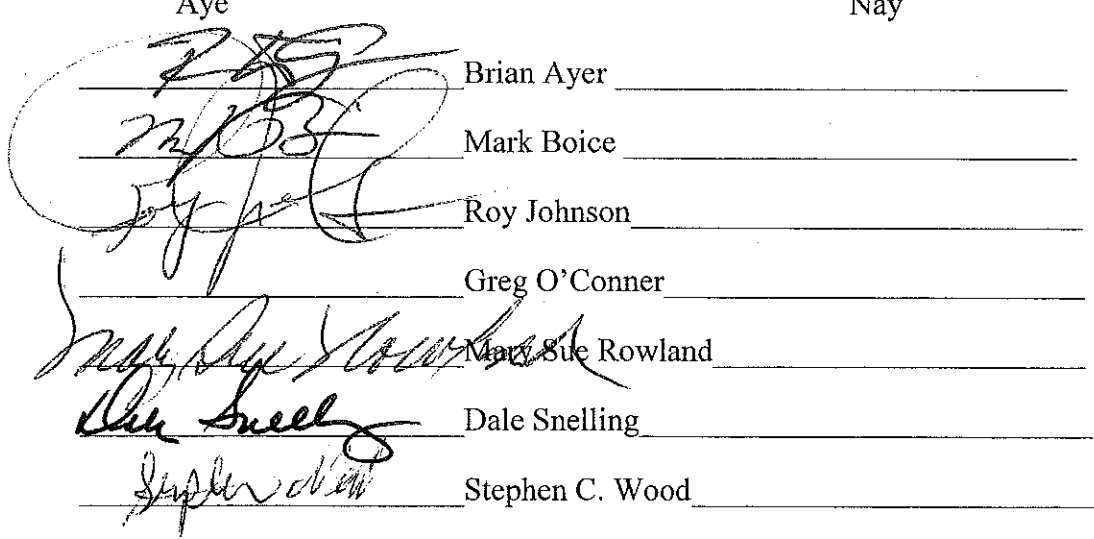 Aye Nay
Brian Ayer
Mark Boice
Roy Johnson
Greg O'Conner
Mary Sue Rowland Mary Sue Rowland
Dale Snelling Dale Snelling
Stephen C. Wood